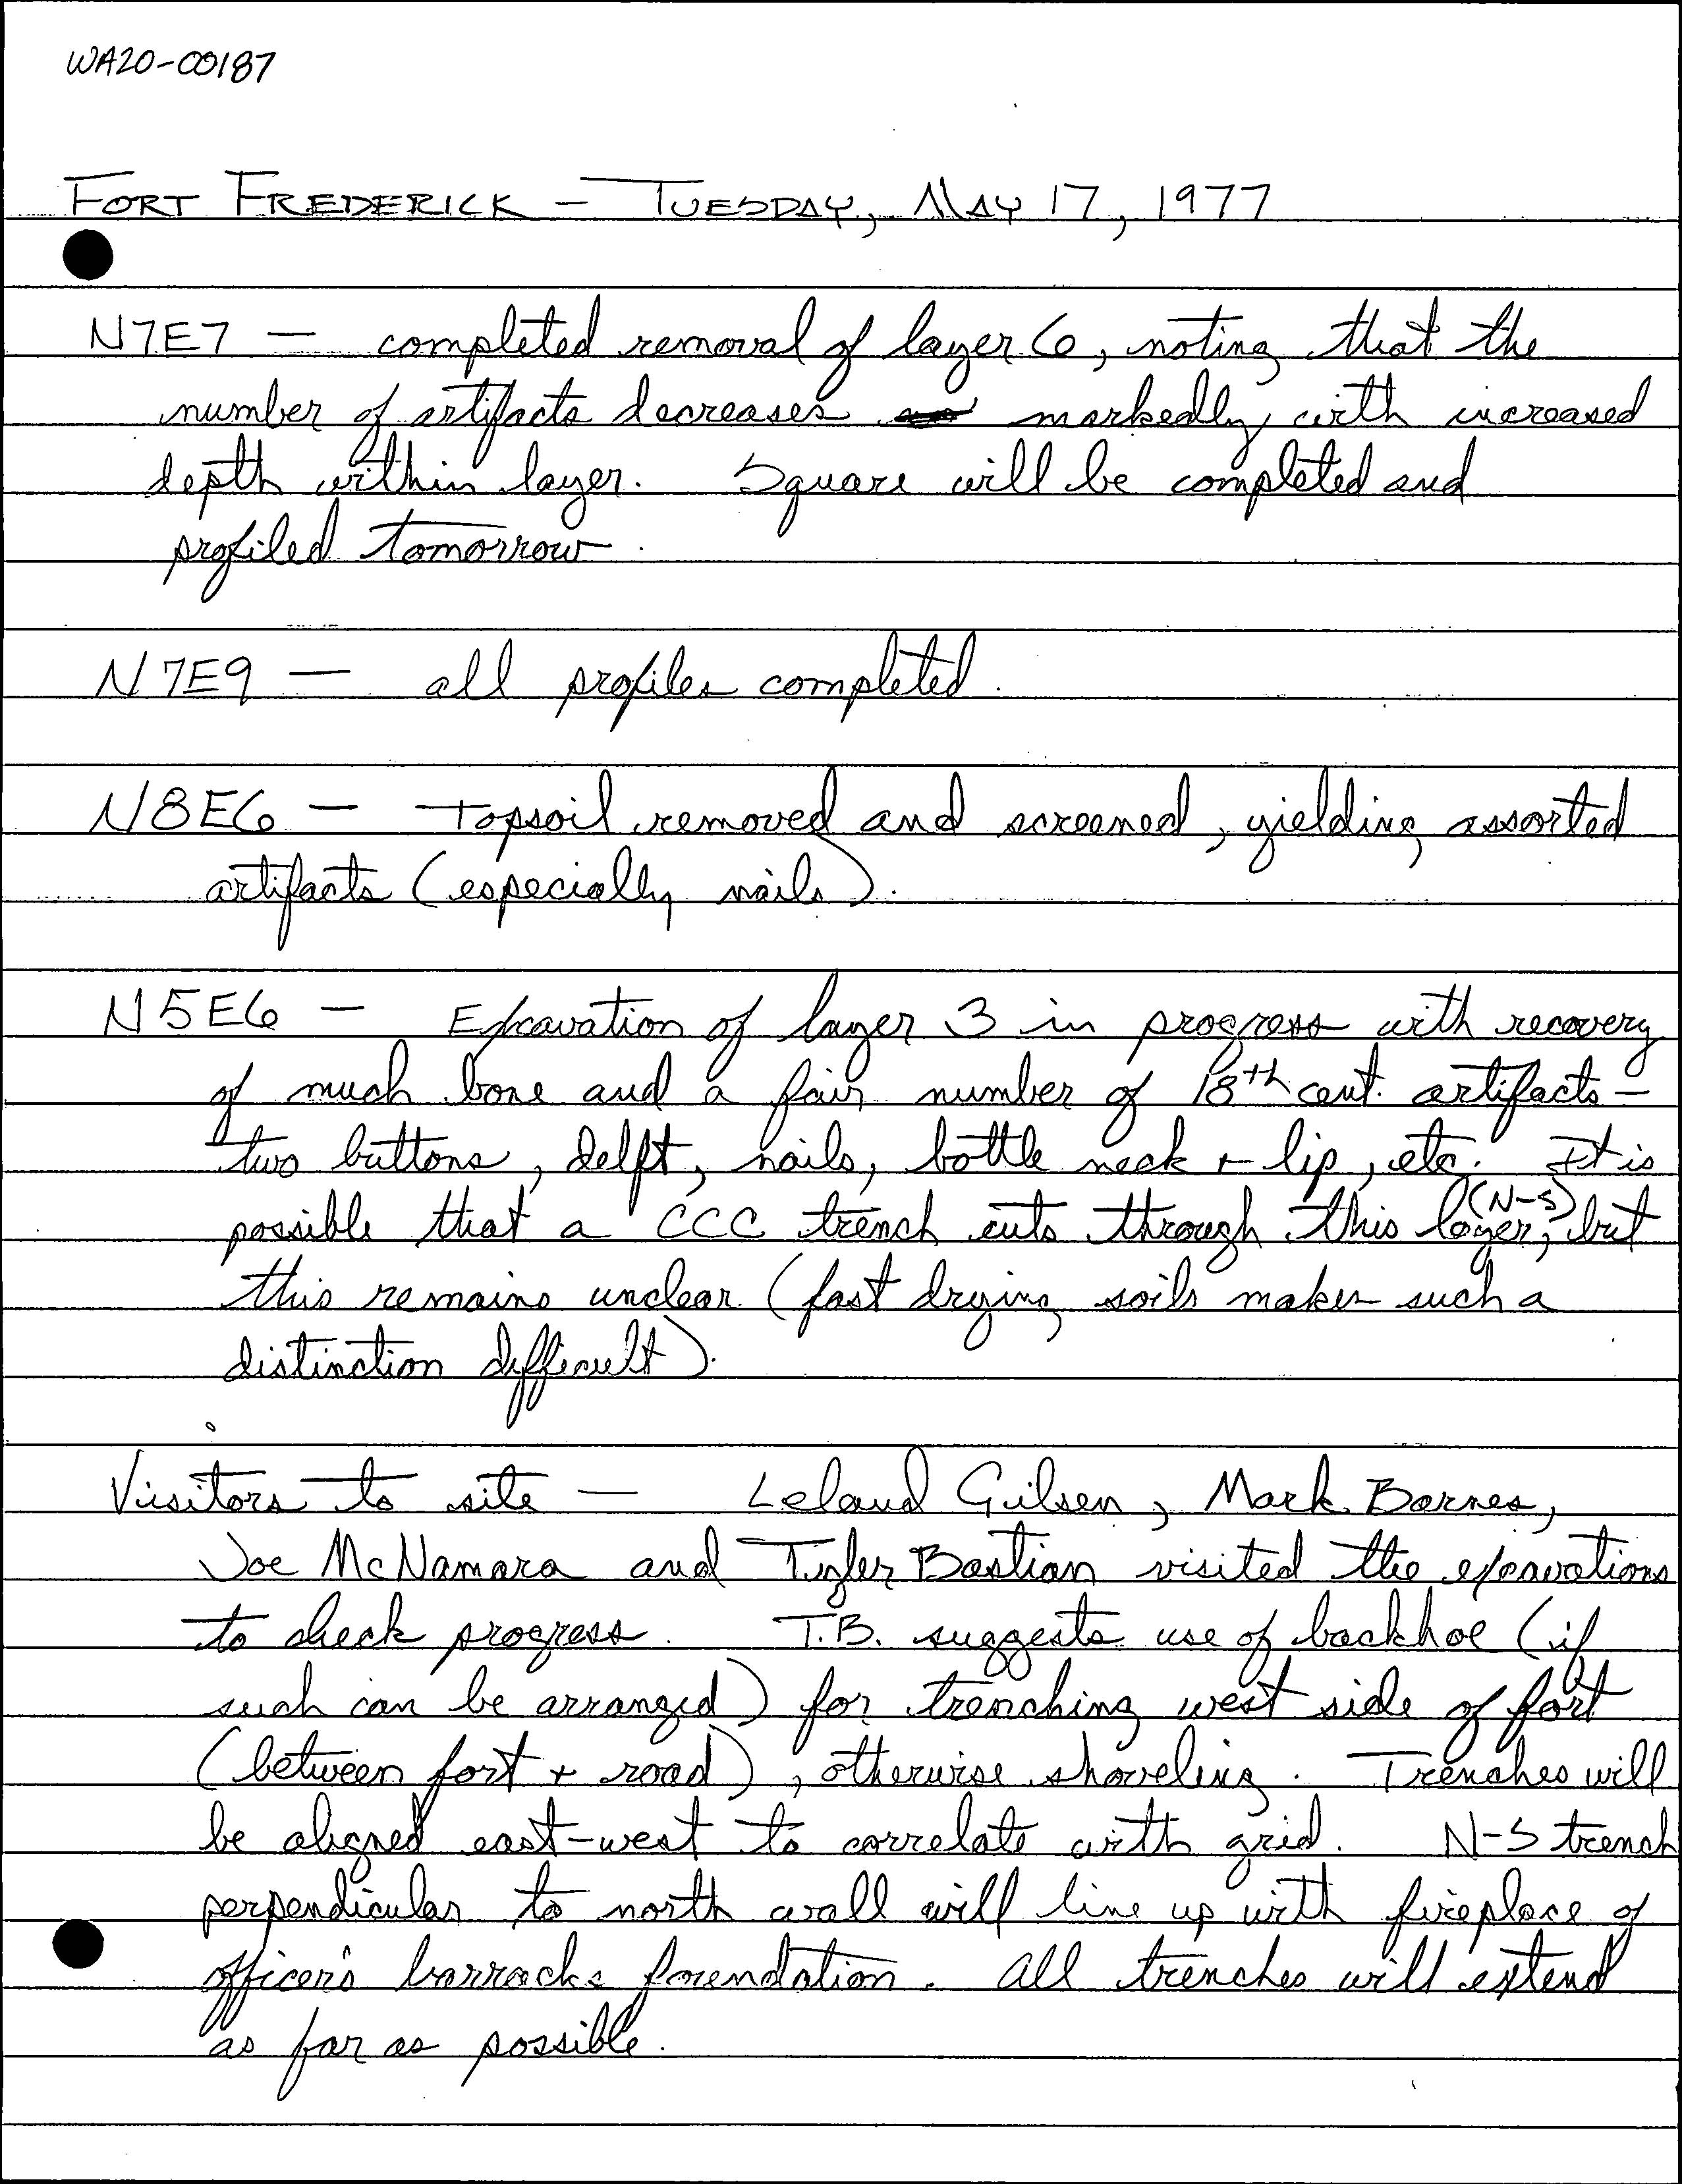 WA20-00187
FORT FREDERICK - TUESDAY, MAY 17, 1977
N7E7 — completed removal of layer 6, noting that the
number of artifacts decreases markedly with increased
depth within layer. Square will be completed and
profiled tomorrow.
N7E9 — all profiles completed.
N8E6 — Topsoil removed and screened, yielding assorted
artifacts (especially nails).
N5E6 — Excavation of layer 3 in progress with recovery
of much bone and a fair number of 18th cent. artifacts -
two buttons, delft, nails, bottle neck + lip, etc. It is
possible that a CCC trench cuts through this layer (N-S), but
this remains unclear (fast drying soils makes such a
distinction difficult).
Visitors to site — Leland Gilsen, Mark Barnes,
Joe McNamara and Tyler Bastian visited the excavations
to check progress. T.B. suggests use of backhoe (if
such can be arranged) for trenching west side of fort
(between fort + road), otherwise shoveling. Trenches will
be aligned east-west to correlate with grid. N-S trench
perpendicular to north wall will line up with fireplace of
officer's barracks foundation. All trenches will extend
as far as possible.